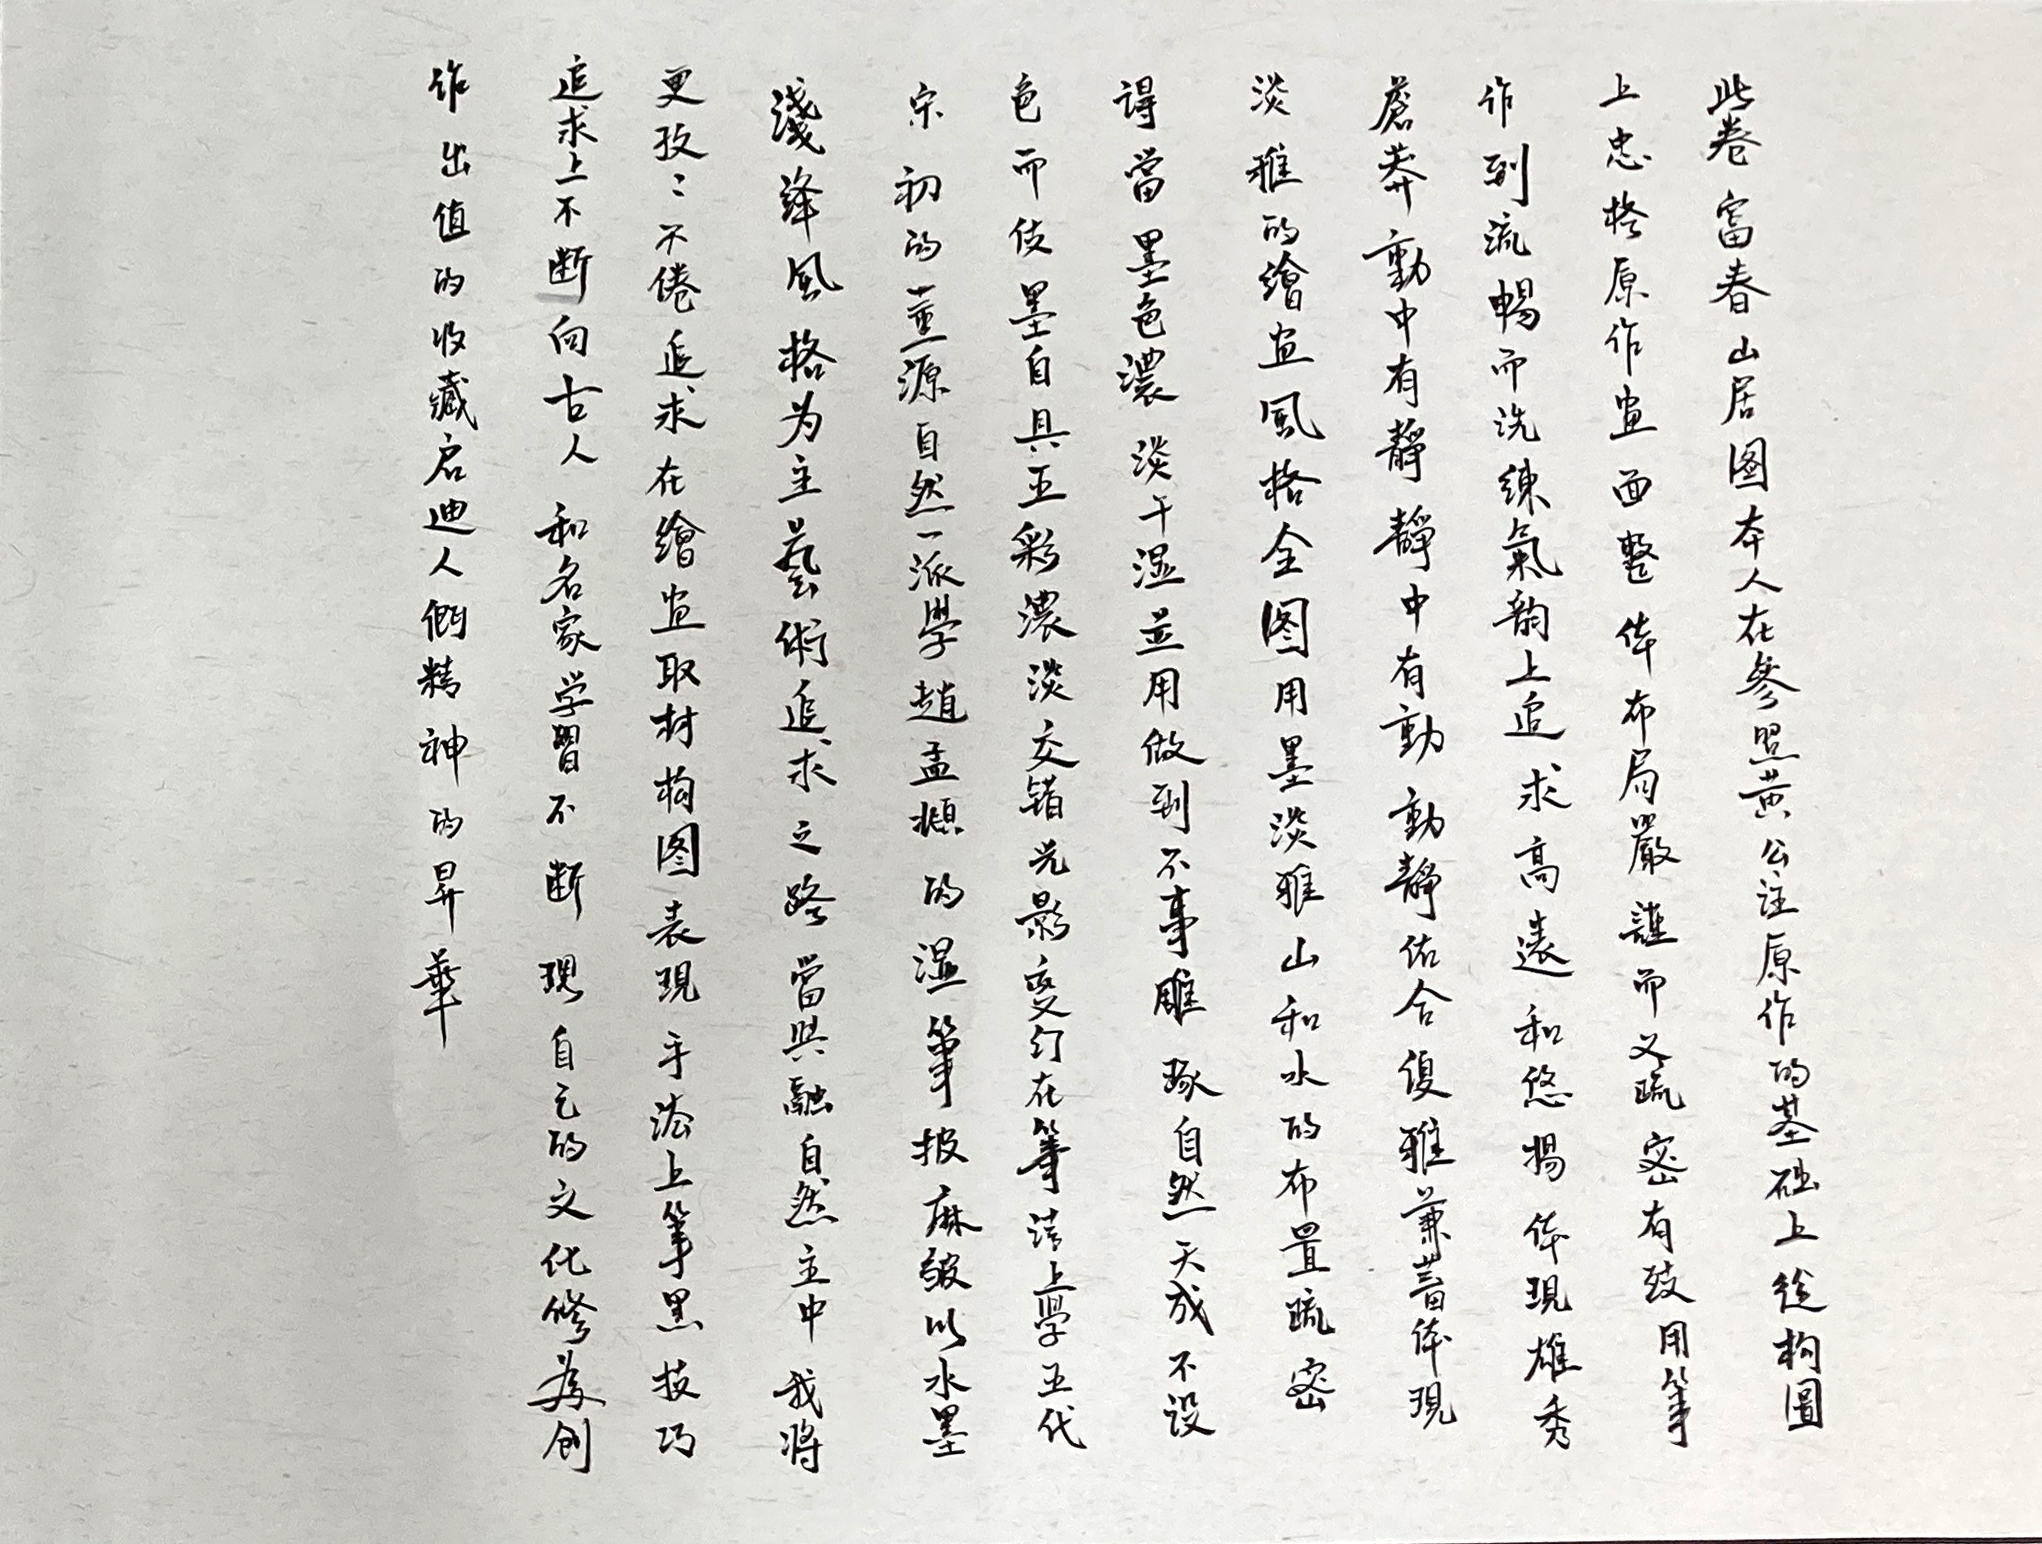 此卷富春山居图本人在參照黄公注原作的基础上從构圖
上忠於原作畫面整体布局嚴謹而又疏密有致用筆
作到流暢而洗練氣韵上追求高遠和悠揚体現雄秀
蒼莽動中有靜靜中有動動靜佑合復雅兼蓄体現
淡雅的繪畫風格全图用墨淡雅山和水的布置疏密
得當墨色濃淡干湿並用做到不事雕琢自然天成不设
色而伎墨自具五彩濃淡交错光影变幻在筆清上學五代
宋初的董源自然一派學趙孟頫的湿筆披麻皴以水墨
淺絳風格为主藝術追求之路當與融自然主中我将
更孜〻不倦追求在繪畫取材构图表現手法上筆黑技巧
追求上不断向古人和名家学習不断現自己的文化修為创
作出值的收藏启迪人們精神的昇華